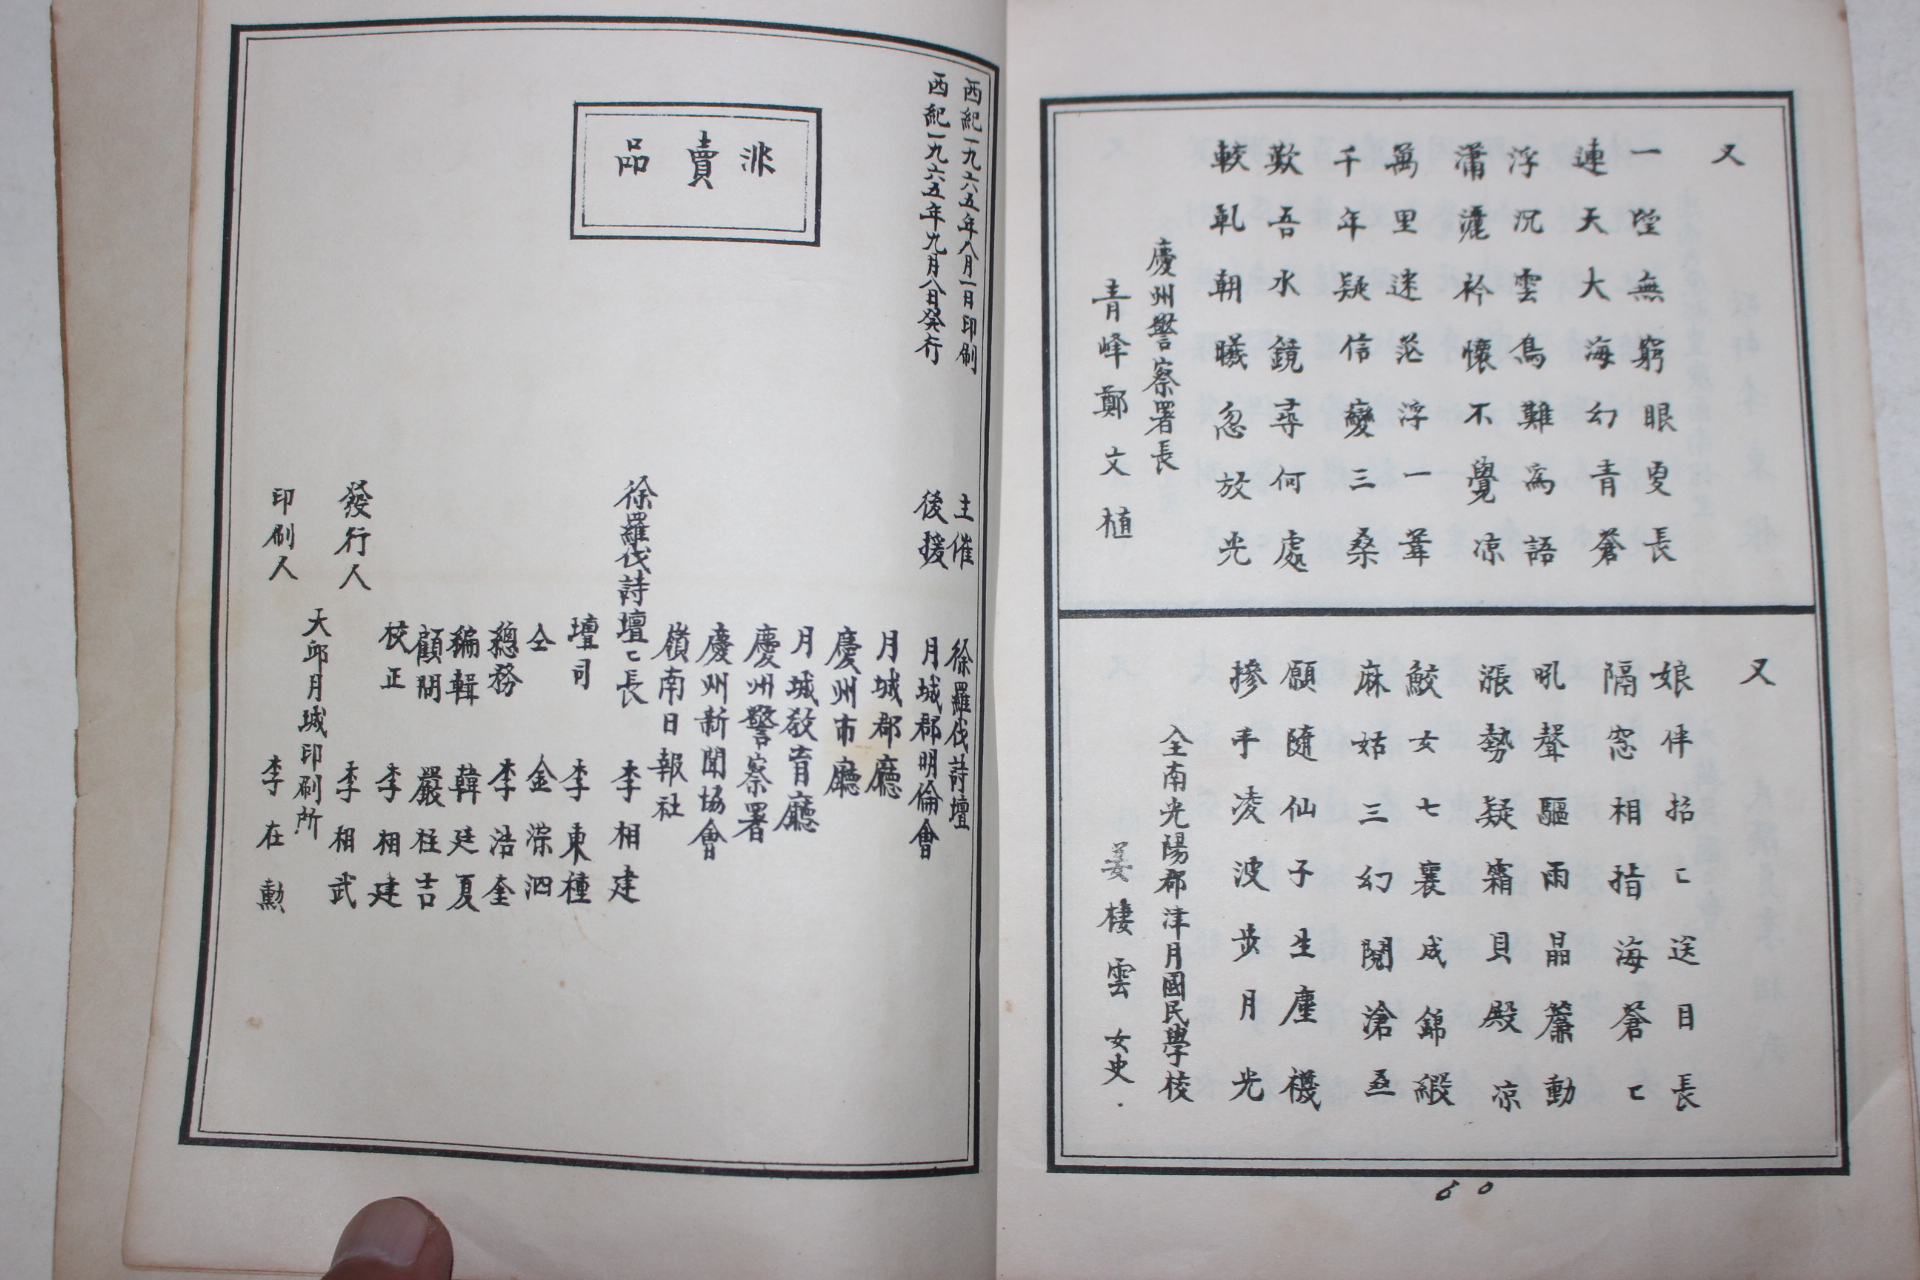 又
一堂無窮眼更長
連天大海幻青蒼
浮沉雲鳥難爲語
瀟灑衿懷不覺凉
萬里迷茫浮一葦
千年疑信變三桑
歎吾水鏡尋何處
較軋朝曦忽放光
慶州警察署長
青峰鄭文植
又
娘伴招〻送目長
隔窓相指海蒼〻
吼聲驅雨晶簾動
漲勢疑霜貝殿凉
鮫女七襄成錦緞
麻姑三幻閱滄桑
願隨仙子生塵襪
摻手凌波步月光
全南光陽郡津月國民學校
姜棲雲女史
60
西紀一九六五年八月一日印刷
西紀一九六五年九月八日発行
非賣品
主催 徐羅伐詩壇
後援 月城郡明倫會
月城郡廳
慶州市廳
月城敎育廳
慶州警察署
慶州新聞協會
嶺南日報社
徐羅伐詩壇〻長 李相建
壇司 李東種
仝 金淙泗
總務 李浩奎
編輯 韓廷夏
顧問 嚴柱吉
校正 李相建
發行人 李相武
大邱月城印刷所
印刷人 李在勳